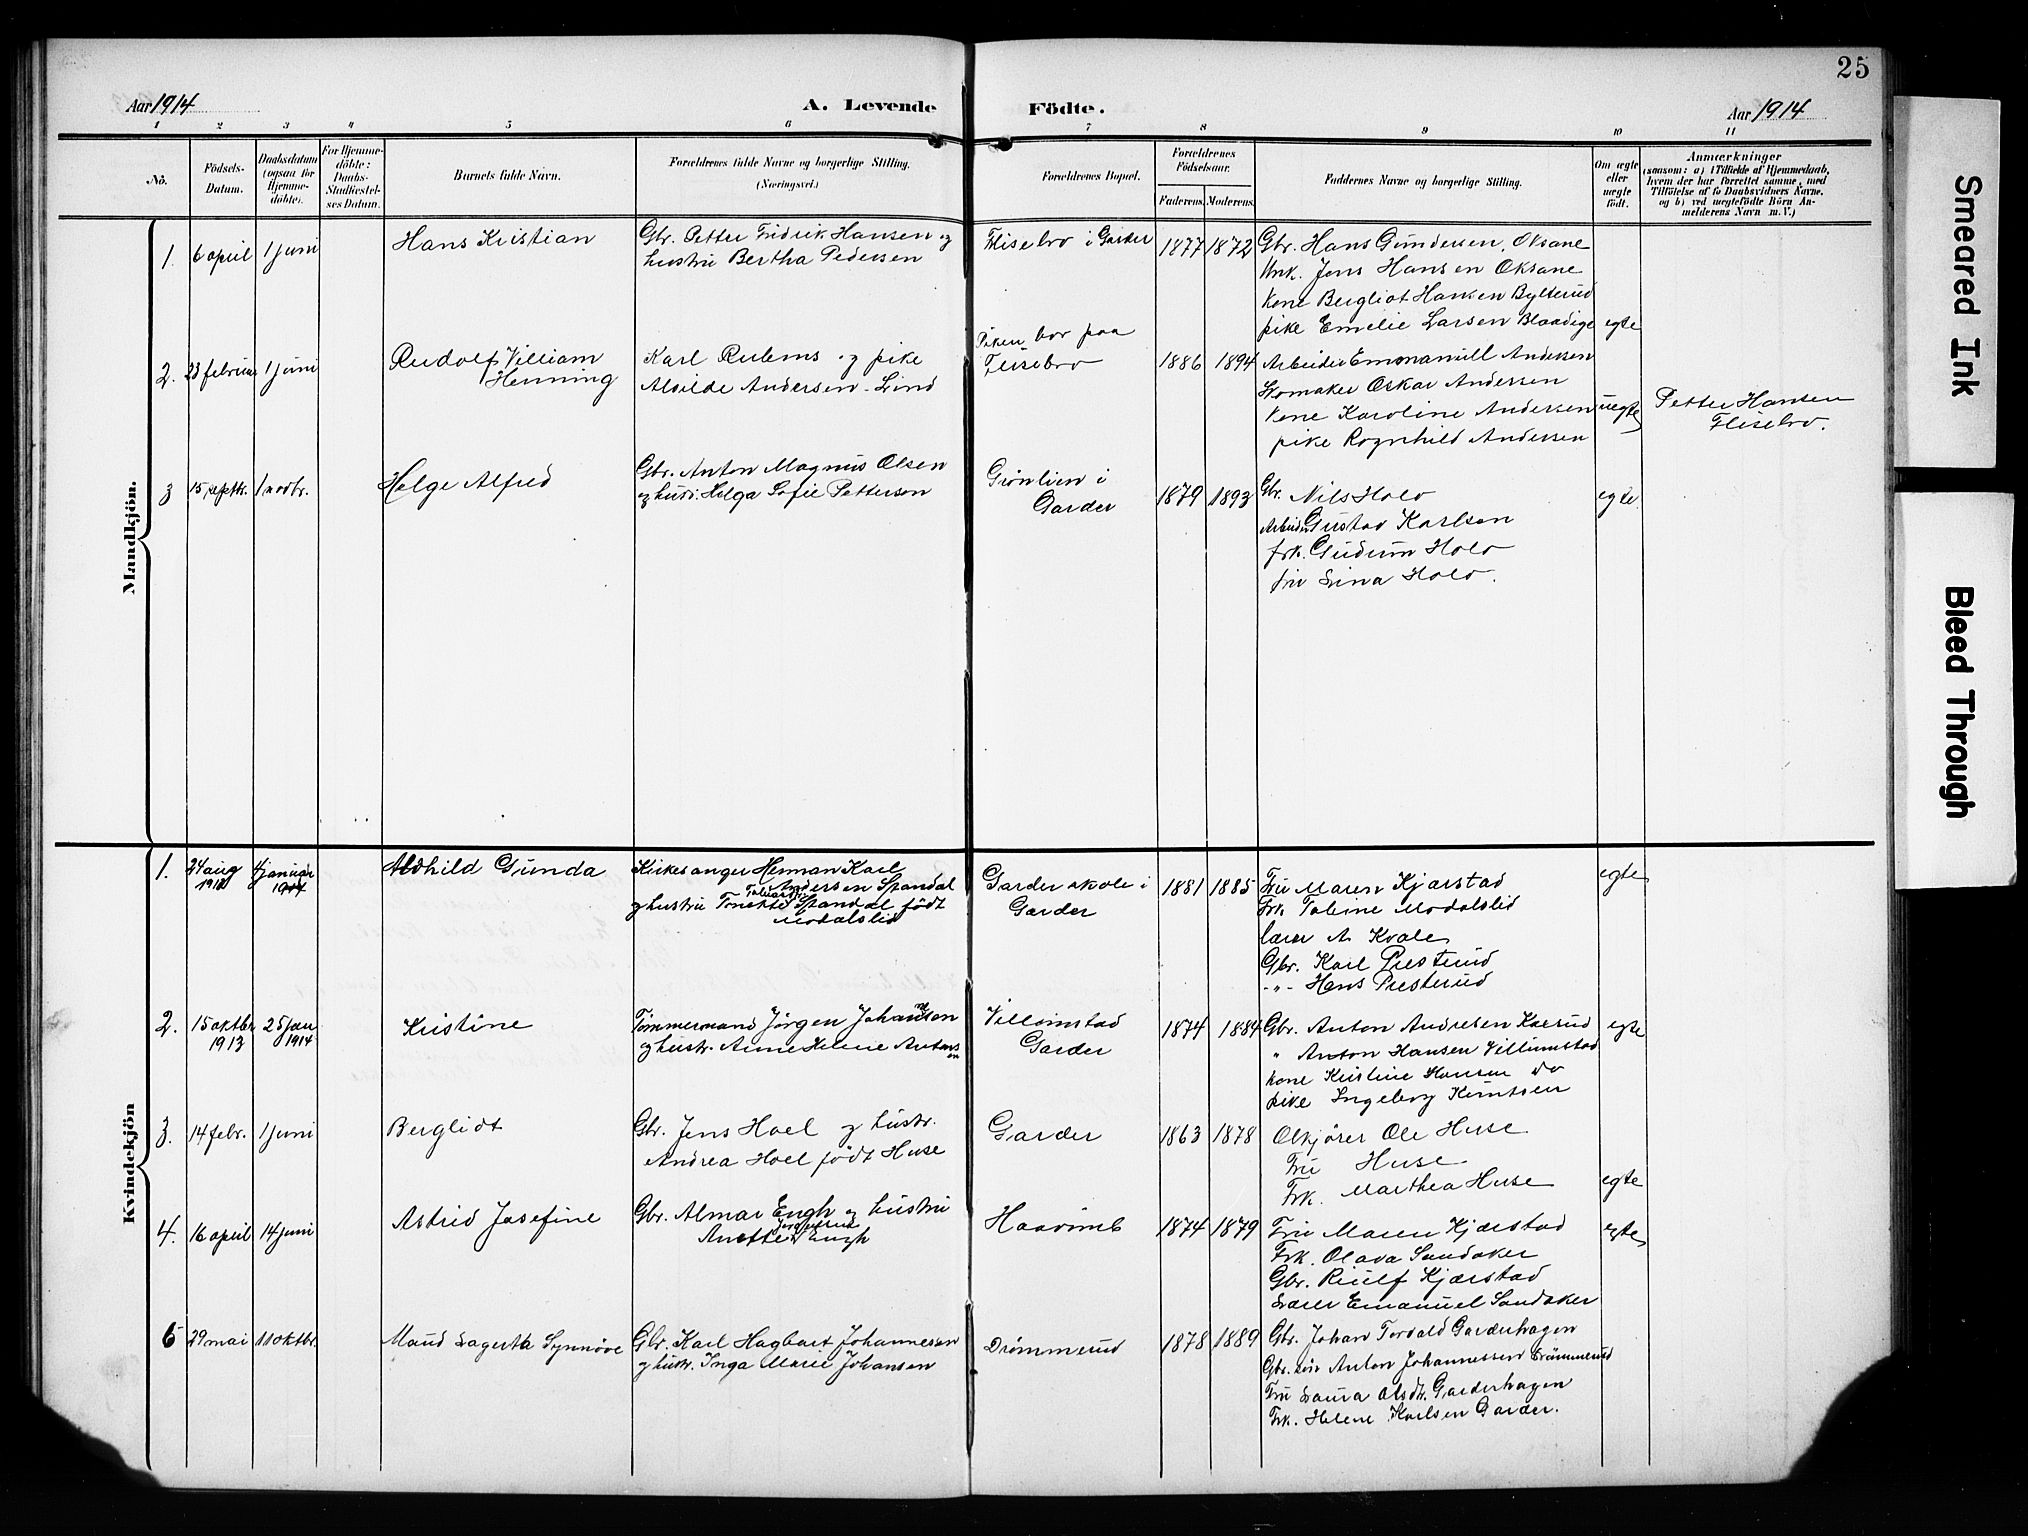 25
Aar 1914
A. Levende Fødte.
Aar 1914
1 2 3 4 5 6 7 8 9 10 11
No.
Födsels-Datum.
Daabsdatum (ogsaa for Hjemme-döbte).
For Hjemme-döbte: Daabs-Stadfæstel-ses Datum.
Barnets fulde Navn.
Forældrenes fulde Navne og borgerlige Stilling.
(Næringsvei.)
Forældrenes Bopæl.
Forældrenes Födselsaar.
Faderens.
Moderens.
Faddernes Navne og borgerlige Stilling.
Om ægte eller uægte födt.
Anmærkninger
(saasom: a) i Tilfælde af Hjemmedaab,
hvem der har forrettet samme, med
Tilföielse af to Daabsvidners Navne.
og b) ved uægtefödte Börn An-
melderens Navn m. V.)
Mandkjön.
1. 6 april 1 juni Hans Kristian
Gbr. Petter Fridrik Hansen og
hustru Bertha Pedersen
Flisebro i Garder 1877 1872
Gbr. Hans Gundersen, Oksane
Unk. Jens Hansen Oksane
kone Bergliot Hansen Bylterud
pike Emelie Larsen Blaadige egte
2. 23 februar 1 juni Rudolf Villiam
Henning
Karl Rulems og pike
Alvilde Andersen-Lind
Piken bor paa
Flisebro 1886 1894
Arbeider Emmanuell Andersen
Skomaker Oskar Andersen
kone Karoline Andersen uegte
pike Rognhild Andersen
Petter Hansen
Flisebro.
3 15 septr. 1 novbr. Helge Alfred
Gbr. Anton Magnus Olsen
og hus: Helga Sofie Petterson
Grönlien i
Garder 1879 1893
Gbr. Nils Holo egte
Arbeider Gustav Karlsen
frk. Gudrun Holo
fru Lina Holo.
Kvindekjön
1. 24 aug 1913 4 januar 1914 Alvhild Gunda
Kirkesanger Herman Karl
Andersen Spandal
og hustru Tonette Spandal födt
Modalslid
Garder skole i
Garder 1881 1885
Fru Maren Kjærstad egte
Frk. Tobine Modalslid
lærer A. Kvale
Gbr. Karl Presterud
-"- Hans Presterud
2. 15 oktbr 1913 25 jan 1914 Kristine
Tömmermand Jörgen Johansson
og hustr. Anne Helene Antonsen
Villomstad
Garder 1874 1884
Gbr. Anton Andresen Korsud egte
" Anton Hansen Villumstad
kone Kristine Hansen do
pike Ingeborg Kuntsen
3. 14 febr. 1 juni Berglidt
Gbr. Jens Hoel og hustr.
Andrea Hoel födt Huse
Garder 1863 1878
Olkjörer Ole Huse
Fru Huse
Frk. Marthea Huse egte
4. 16 april 14 juni Astrid Josefine
Gbr. Almar Engh og hustru
Anette Josefine Engh
Haavimb 1874 1879
Fru Maren Kjærstad egte
Frk. Olava Sandaker
Gbr. Riulf Kjærstad
Lærer Emanuel Sandaker
5 29 mai 11 oktbr. Maud Lagerta Synnöve
Gbr. Karl Hagbart Johannesen
og hustr. Inga Marie Johansen
Drömmerud 1878 1889
Gbr. Johan Torvald Garderhagen
Gbr. sön Anton Johannessen Drömmerud
Fru Laura Olsdtr. Garderhagen
Frk. Helene Karlsen Garder.
Smeared Ink
Bleed Through